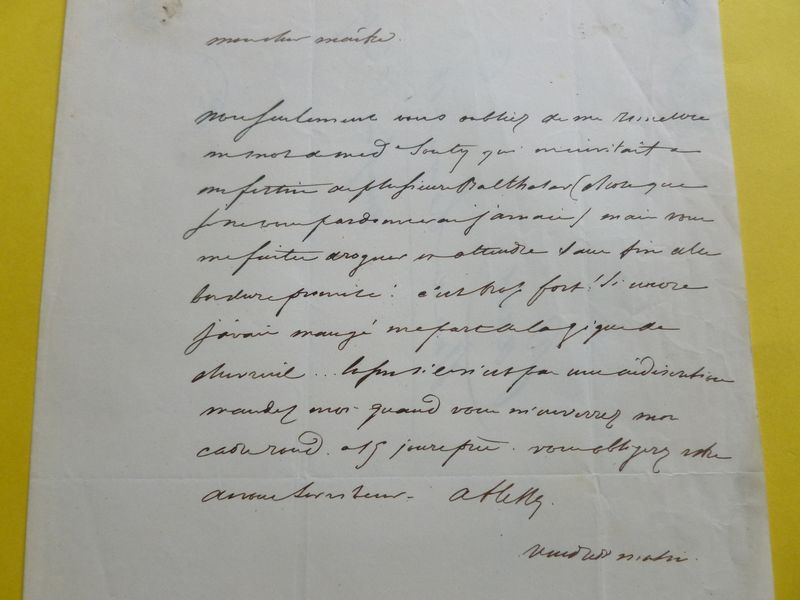 mon cher maître.
non seulement vous oubliez de me remettre
un mot de med Souty qui m'invitait a
un festin de plusieurs Balthasar (chose que
je ne vous pardonnerai jamais) mais vous
me faites droguer en attendre sans fin la
bordure promise! c'est trop fort! Si encore
j'avais mangé ma part de la gigue de
chevreuil... Enfin si ce n'est pas une indiscrétion
mandez moi quand vous m'enverrez mon
cadre rond. a 15 jours près. vous obligerez votre
dévoué serviteur.
vendredi matin.